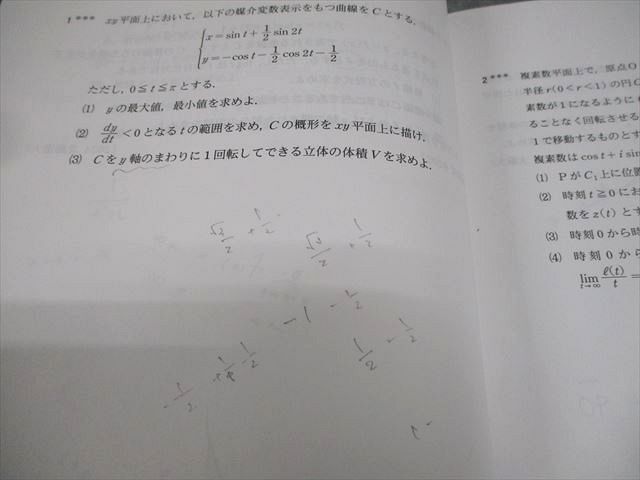 1 *** xy平面上において，以下の媒介変数表示をもつ曲線をCとする．
x=sin t+1/2 sin 2t
y=−cos t−1/2 cos 2t−1/2
ただし，0≦t≦πとする．
(1) yの最大値，最小値を求めよ．
(2) dy/dt<0となるtの範囲を求め，Cの概形をxy平面上に描け．
(3) Cをy軸のまわりに1回転してできる立体の体積Vを求めよ．
√3/2 + 1/2
√3/2 + 1/2
−1 − 1/2
1/2 − 1/2
2 *** 複素数平面上で，原点O
半径r(0<r<1)の円C
素数が1になるように
ることなく回転させる
1で移動するものとす
複素数はcos t+i sin
(1) PがC₁上に位置
(2) 時刻t≧0にお
数をz(t)とす
(3) 時刻0から時
(4) 時刻0から
lim t→∞ ℓ(t)/t =